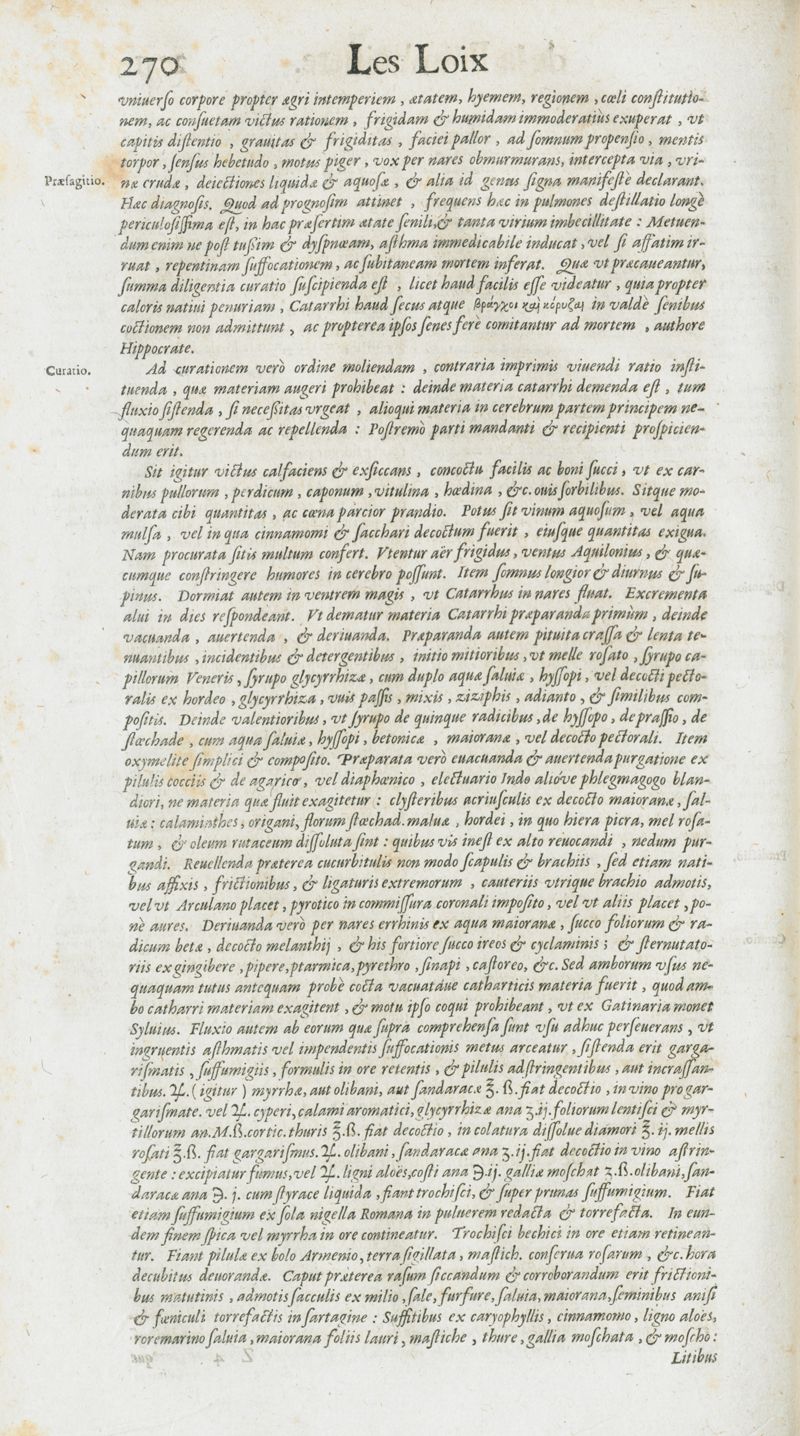 270 Les Loix
vniuerſo corpore propter ægri intemperiem , ætatem, hyemem, regionem , cœli conſtitutio-
nem, ac conſuetam victus rationem , frigidam & humidam immoderatiùs exuperat , vt
capitis diſtentio , grauitas & frigiditas , faciei pallor , ad ſomnum propenſio , mentis
torpor , ſenſus hebetudo , motus piger , vox per nares obmurmurans, intercepta via , vri-
Præſagitio.
næ crudæ , deiectiones liquidæ & aquoſæ , & alia id genus ſigna manifeſtè declarant.
Hæc diagnoſis. Quod ad prognoſim attinet , frequens hæc in pulmones deſtillatio longè
periculoſiſſima eſt, in hac præſertim ætate ſenili,& tanta virium imbecillitate : Metuen-
dum enim ne poſt tuſsim & dyſpnœam, aſthma immedicabile inducat , vel ſi affatim ir-
ruat , repentinam ſuffocationem , ac ſubitaneam mortem inferat. Quæ vt præcaueantur,
ſumma diligentia curatio ſuſcipienda eſt , licet haud facilis eſſe videatur , quia propter
caloris natiui penuriam , Catarrhi haud ſecus atque βράγχοι καὶ κόρυζαι in valdè ſenibus
coctionem non admittunt , ac propterea ipſos ſenes fere comitantur ad mortem , authore
Hippocrate.
Curatio.
Ad curationem verò ordine moliendam , contraria imprimis viuendi ratio inſti-
tuenda , quæ materiam augeri prohibeat : deinde materia catarrhi demenda eſt , tum
fluxio ſiſtenda , ſi neceſsitas vrgeat , alioqui materia in cerebrum partem principem ne-
quaquam regerenda ac repellenda : Poſtremò parti mandanti & recipienti proſpicien-
dum erit.
Sit igitur victus calfaciens & exſiccans , concoctu facilis ac boni ſucci , vt ex car-
nibus pullorum , perdicum , caponum , vitulina , hœdina , &c. ouis ſorbilibus. Sitque mo-
derata cibi quantitas , ac cœna parcior prandio. Potus ſit vinum aquoſum , vel aqua
mulſa , vel in qua cinnamomi & ſacchari decoctum fuerit , eiuſque quantitas exigua.
Nam procurata ſitis multum confert. Vtentur aër frigidus , ventus Aquilonius , & quæ-
cumque conſtringere humores in cerebro poſſunt. Item ſomnus longior & diurnus & ſu-
pinus. Dormiat autem in ventrem magis , vt Catarrhus in nares fluat. Excrementa
alui in dies reſpondeant. Vt dematur materia Catarrhi præparanda primùm , deinde
vacuanda , auertenda , & deriuanda. Præparanda autem pituita craſſa & lenta te-
nuantibus , incidentibus & detergentibus , initio mitioribus , vt melle roſato , ſyrupo ca-
pillorum Veneris , ſyrupo glycyrrhizæ , cum duplo aquæ ſaluiæ , hyſſopi , vel decocti pecto-
ralis ex hordeo , glycyrrhiza , vuis paſſis , mixis , ziziphis , adianto , & ſimilibus com-
poſitis. Deinde valentioribus , vt ſyrupo de quinque radicibus , de hyſſopo , de praſſio , de
ſtœchade , cum aqua ſaluiæ , hyſſopi , betonicæ , maioranæ , vel decocto pectorali. Item
oxymelite ſimplici & compoſito. Præparata verò euacuanda & auertenda purgatione ex
pilulis cocciis & de agarico , vel diaphœnico , electuario Indo alióve phlegmagogo blan-
diori, ne materia quæ fluit exagitetur : clyſteribus acriuſculis ex decocto maioranæ , ſal-
uiæ : calaminthes , origani, florum ſtœchad. maluæ , hordei , in quo hiera picra, mel roſa-
tum , & oleum rutaceum diſſoluta ſint : quibus vis ineſt ex alto reuocandi , nedum pur-
gandi. Reuellenda præterea cucurbitulis non modo ſcapulis & brachiis , ſed etiam nati-
bus affixis , frictionibus , & ligaturis extremorum , cauteriis vtrique brachio admotis,
vel vt Arculano placet , pyrotico in commiſſura coronali impoſito , vel vt aliis placet , po-
nè aures. Deriuanda verò per nares errhinis ex aqua maioranæ , ſucco foliorum & ra-
dicum betæ , decocto melanthij , & his fortiore ſucco ireos & cyclaminis ; & ſternutato-
riis ex gingibere , pipere,ptarmica,pyrethro , ſinapi , caſtoreo, &c. Sed amborum vſus ne-
quaquam tutus antequam probè cocta vacuatáue catharticis materia fuerit , quod am-
bo catharri materiam exagitent , & motu ipſo coqui prohibeant , vt ex Gatinaria monet
Syluius. Fluxio autem ab eorum quæ ſuprà comprehenſa ſunt vſu adhuc perſeuerans , vt
ingruentis aſthmatis vel impendentis ſuffocationis metus arceatur , ſiſtenda erit garga-
riſmatis , ſuffumigiis , formulis in ore retentis , & pilulis adſtringentibus , aut incraſſan-
tibus. ♃. ( igitur ) myrrhæ, aut olibani, aut ſandaracæ ℥. ß. fiat decoctio , in vino pro gar-
gariſmate. vel ♃. cyperi, calami aromatici, glycyrrhizæ ana ʒ.ij. foliorum lentiſci & myr-
tillorum an.M.ß.cortic.thuris ℥.ß. fiat decoctio , in colatura diſſolue diamori ℥. ij. mellis
roſati ℥.ß. fiat gargariſmus. ♃. olibani , ſandaracæ ana ʒ.ij.fiat decoctio in vino aſtrin-
gente : excipiatur fumus,vel ♃. ligni aloës,coſti ana ℈.ij. galliæ moſchat ʒ.ß.olibani,ſan-
daracæ ana ℈. j. cum ſtyrace liquida , fiant trochiſci, & ſuper prunas ſuffumigium. Fiat
etiam ſuffumigium ex ſola nigella Romana in puluerem redacta & torrefacta. In eun-
dem finem ſpica vel myrrha in ore contineatur. Trochiſci bechici in ore etiam retinean-
tur. Fiant pilulæ ex bolo Armenio, terra ſigillata , maſtich. conſerua roſarum , &c. hora
decubitus deuorandæ. Caput præterea raſum ſiccandum & corroborandum erit frictioni-
bus matutinis , admotis ſacculis ex milio , ſale, furfure, ſaluia, maiorana, ſeminibus aniſi
& fœniculi torrefactis in ſartagine : Suffitibus ex caryophyllis , cinnamomo , ligno aloës,
roremarino ſaluia , maiorana foliis lauri , maſtiche , thure , gallia moſchata , & moſcho :
Litibus